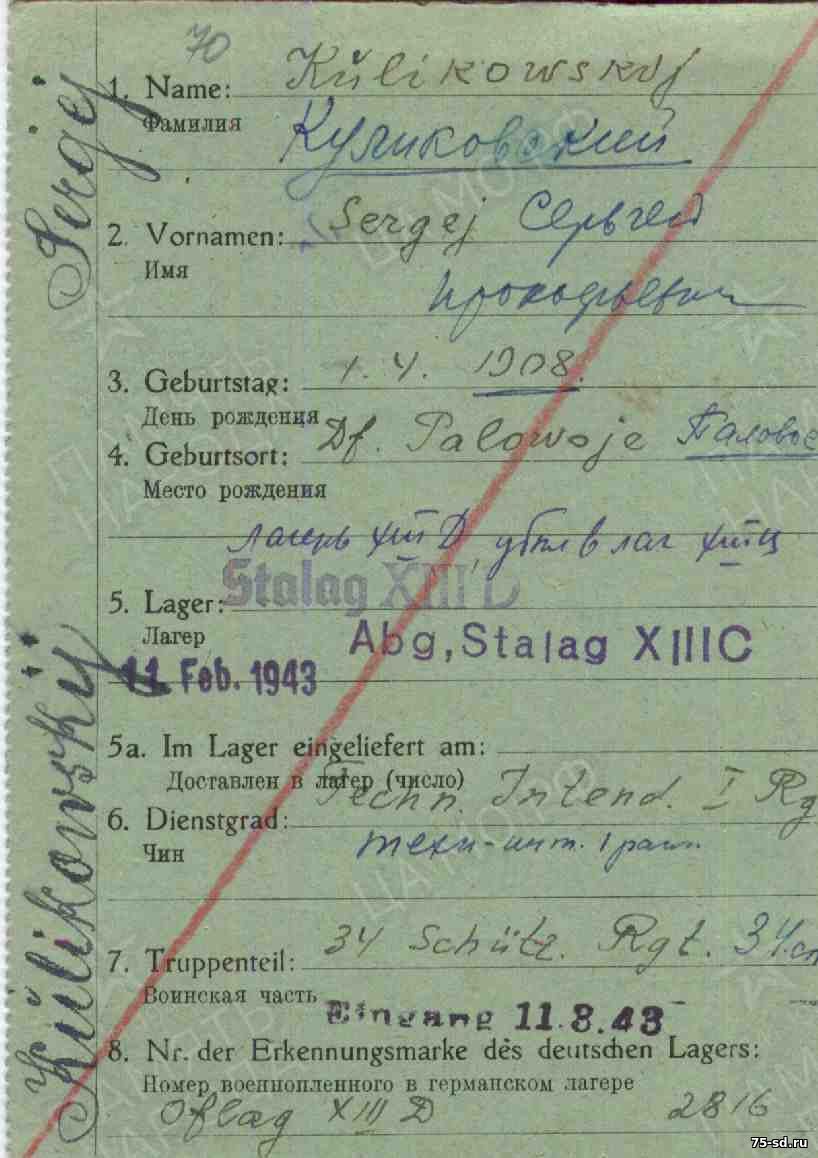 70
1. Name: Külikowskij
Фамилия Куликовский
2. Vornamen: Sergej Сергей
Имя
Прокофьевич
3. Geburtstag: 1. 4. 1908.
День рождения
4. Geburtsort: Df. Palowoje Паловое
Место рождения
лагерь XIII D, убыл в лаг XIII Ц
Stalag XIII D
5. Lager:
Лагер
Abg, Stalag XIIIC
11. Feb. 1943
5a. Im Lager eingeliefert am:
Доставлен в лагер (число)
6. Dienstgrad: Techn. Intend. I Rg
Чин техн-инт. 1 ранг.
7. Truppenteil: 34 Schütz. Rgt. 34.сп
Воинская часть
Eingang 11.8.43
8. Nr. der Erkennungsmarke des deutschen Lagers:
Номер военнопленного в германском лагере
Oflag XIII D 2816
Külikovskij Sergej
75-sd.ru